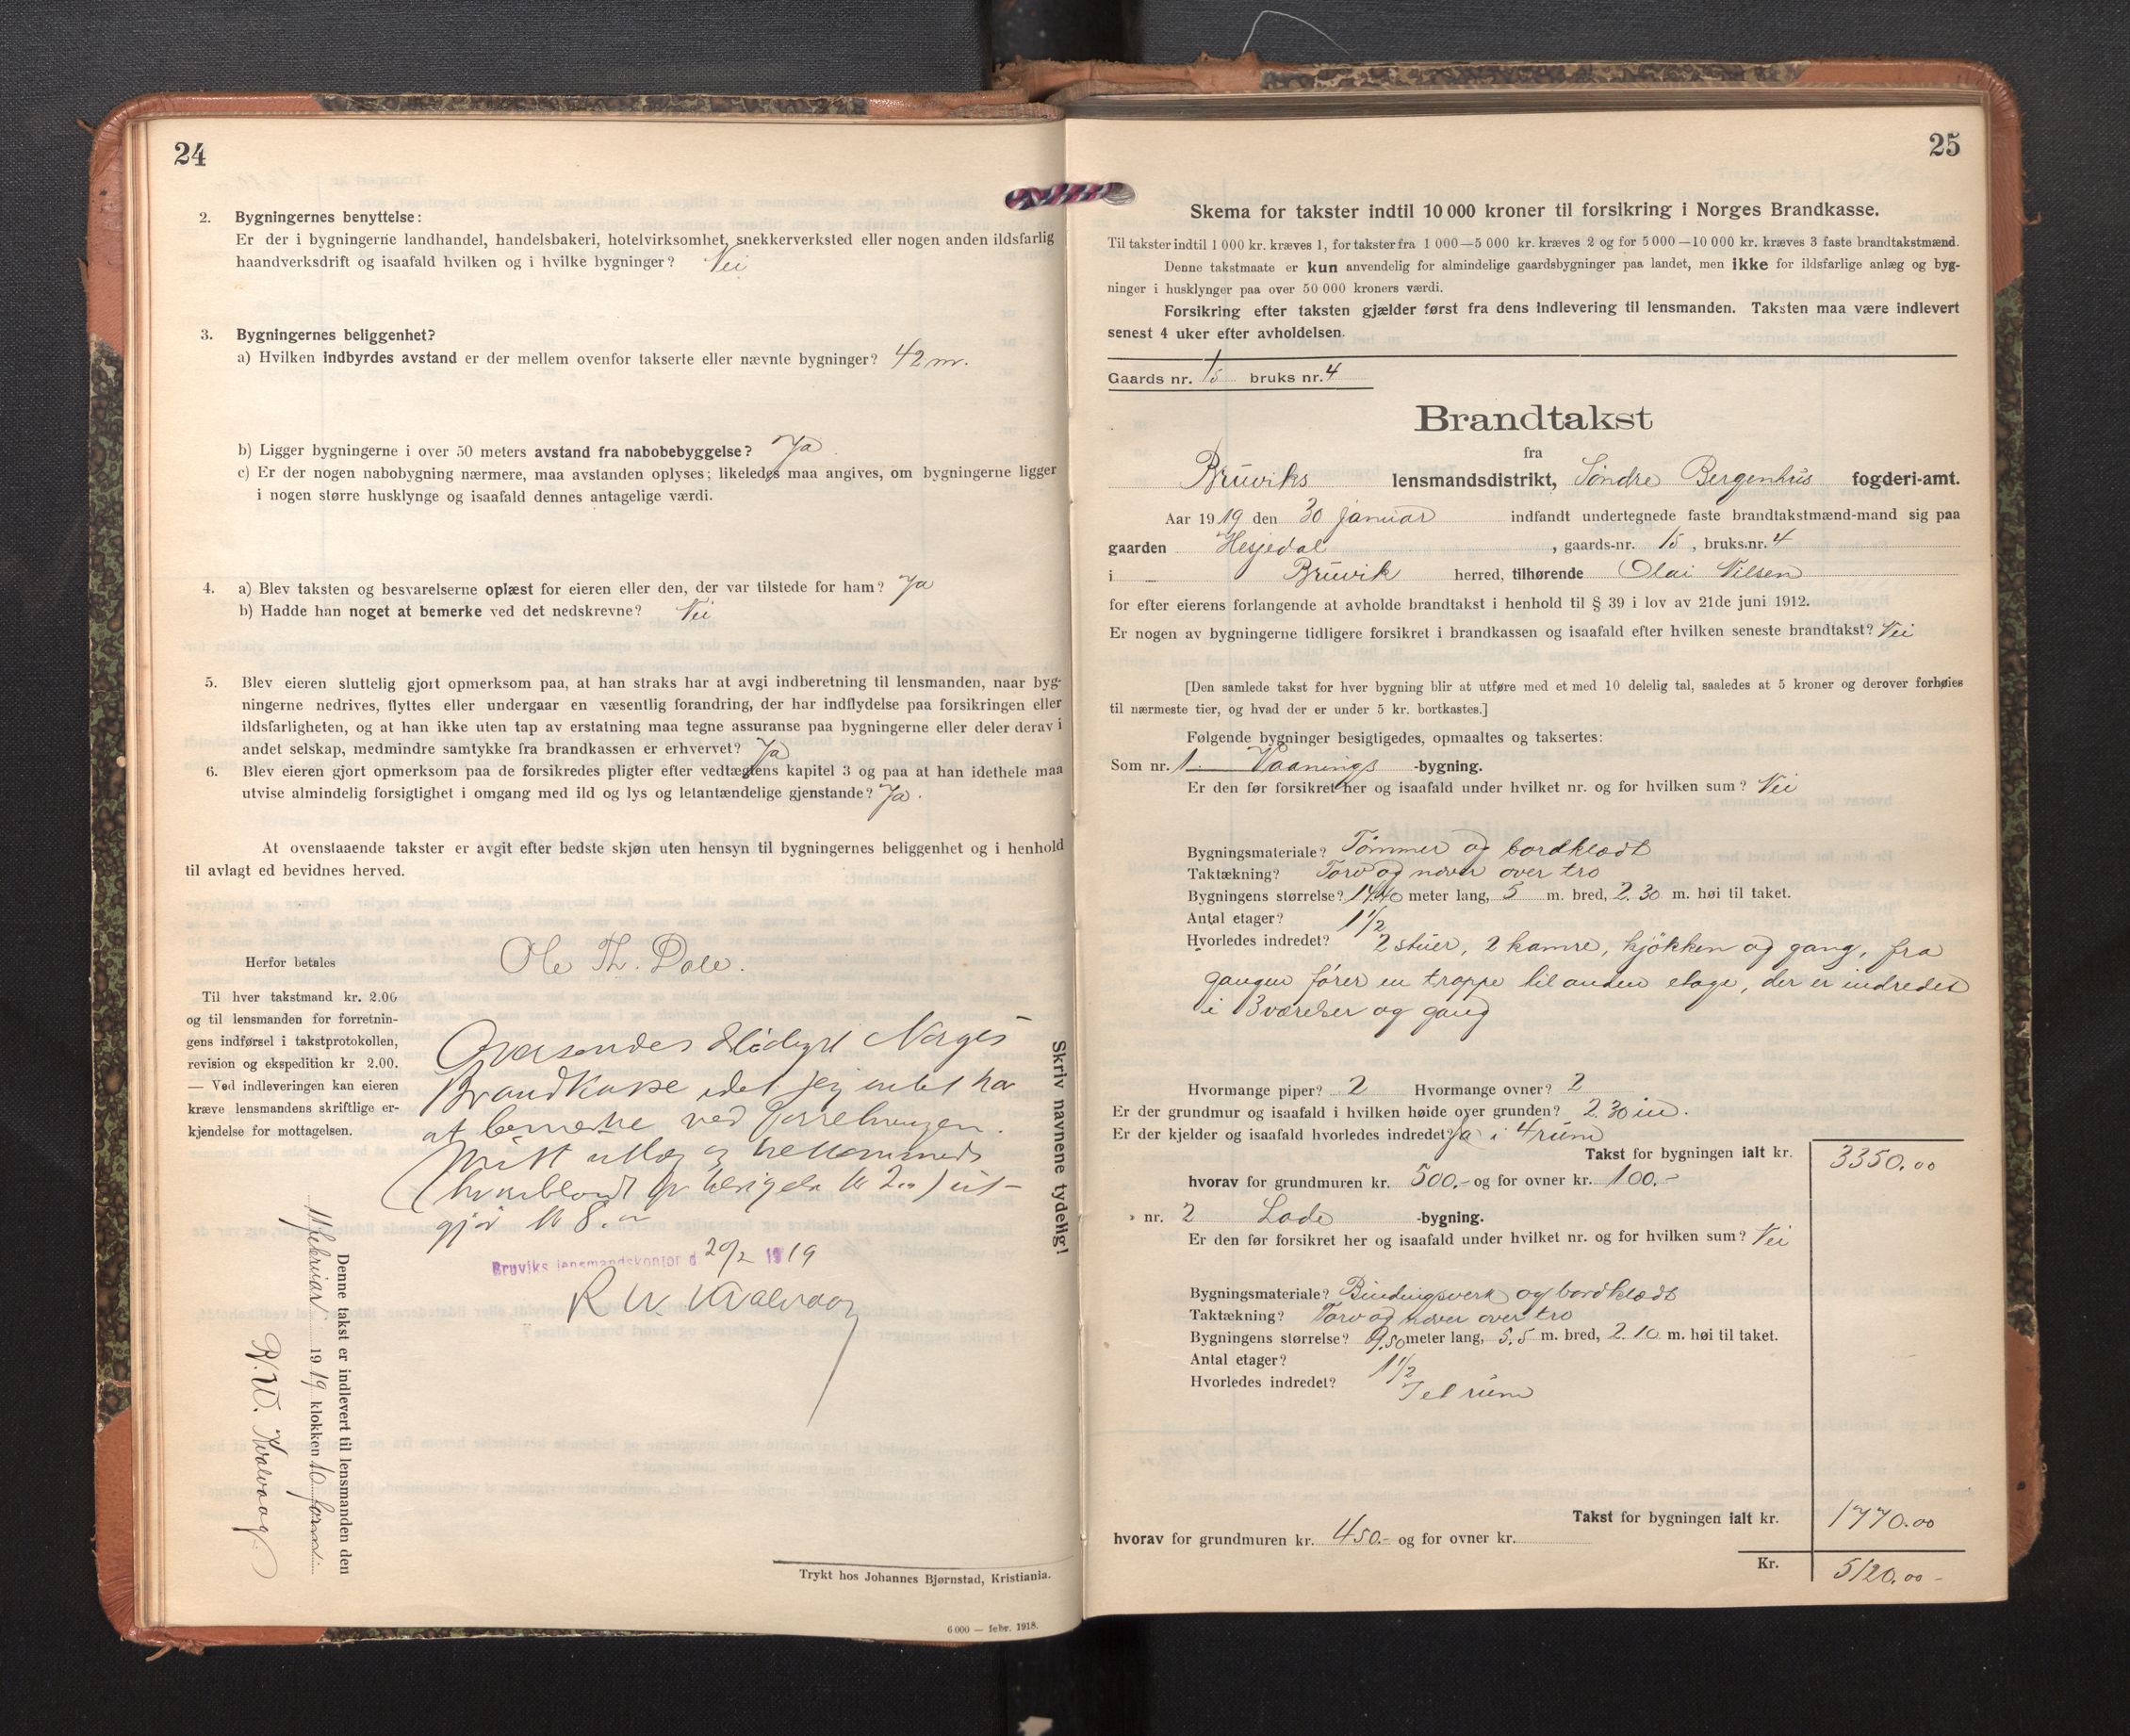 24
2. Bygningernes benyttelse:
Er der i bygningerne landhandel, handelsbakeri, hotelvirksomhet, snekkerverksted eller nogen anden ildsfarlig
haandverksdrift og isaafald hvilken og i hvilke bygninger? Nei
3. Bygningernes beliggenhet?
a) Hvilken indbyrdes avstand er der mellem ovenfor takserte eller nævnte bygninger? 42 m.
b) Ligger bygningerne i over 50 meters avstand fra nabobebyggelse? Ja
c) Er der nogen nabobygning nærmere, maa avstanden oplyses; likeledes maa angives, om bygningerne ligger
i nogen større husklynge og isaafald dennes antagelige værdi.
4. a) Blev taksten og besvarelserne oplæst for eieren eller den, der var tilstede for ham? Ja
b) Hadde han noget at bemerke ved det nedskrevne? Nei
5. Blev eieren sluttelig gjort opmerksom paa, at han straks har at avgi indberetning til lensmanden, naar byg-
ningerne nedrives, flyttes eller undergaar en væsentlig forandring, der har indflydelse paa forsikringen eller
ildsfarligheten, og at han ikke uten tap av erstatning maa tegne assuranse paa bygningerne eller deler derav i
andet selskap, medmindre samtykke fra brandkassen er erhvervet? Ja
6. Blev eieren gjort opmerksom paa de forsikredes pligter efter vedtægtens kapitel 3 og paa at han idethele maa
utvise almindelig forsigtighet i omgang med ild og lys og letantændelige gjenstande? Ja.
At ovenstaaende takster er avgit efter bedste skjøn uten hensyn til bygningernes beliggenhet og i henhold
til avlagt ed bevidnes herved.
Ole Th. Dale.
Herfor betales
Til hver takstmand kr. 2.00
og til lensmanden for forretnin-
gens indførsel i takstprotokollen,
revision og ekspedition kr 2.00.
— Ved indleveringen kan eieren
kræve lensmandens skriftlige er-
kjendelse for mottagelsen.
Oversendes Norges
Brandkasse idet jeg intet har
at bemerke ved forretningen.
gjør kr 8.
Bruviks lensmandskontor d 20/2 1919
R W. Kvalvaag
Skriv navnene tydelig!
Denne takst er indlevert til lensmanden den
februar 1919 klokken 10 formid.
R. W. Kvalvaag.
Trykt hos Johannes Bjørnstad, Kristiania.
6000 — febr. 1918.
25
Skema for takster indtil 10 000 kroner til forsikring i Norges Brandkasse.
Til takster indtil 1 000 kr. kræves 1, for takster fra 1 000—5 000 kr. kræves 2 og for 5 000—10 000 kr. kræves 3 faste brandtakstmænd.
Denne takstmaate er kun anvendelig for almindelige gaardsbygninger paa landet, men ikke for ildsfarlige anlæg og byg-
ninger i husklynger paa over 50 000 kroners værdi.
Forsikring efter taksten gjælder først fra dens indlevering til lensmanden. Taksten maa være indlevert
senest 4 uker efter avholdelsen.
Gaards nr. 15 bruks nr. 4
Brandtakst
fra
Bruviks lensmandsdistrikt, Söndre Bergenhus fogderi-amt.
Aar 1919 den 30 januar indfandt undertegnede faste brandtakstmænd-mand sig paa
gaarden Hesjedal, gaards-nr. 15, bruks.nr. 4
i Bruvik herred, tilhørende Olai Nilsen
for efter eierens forlangende at avholde brandtakst i henhold til § 39 i lov av 21de juni 1912.
Er nogen av bygningerne tidligere forsikret i brandkassen og isaafald efter hvilken seneste brandtakst? Nei
[Den samlede takst for hver bygning blir at utføre med et med 10 delelig tal, saaledes at 5 kroner og derover forhøies
til nærmeste tier, og hvad der er under 5 kr. bortkastes.]
Følgende bygninger besigtigedes, opmaaltes og taksertes:
Som nr. 1. Vaanings -bygning.
Er den før forsikret her og isaafald under hvilket nr. og for hvilken sum? Nei
Bygningsmateriale? Tömmer og bordklædt
Taktækning? Torv og næver over tro
Bygningens størrelse? 14.40 meter lang, 5 m. bred, 2.30 m. høi til taket.
Antal etager? 1 1/2
Hvorledes indredet? 2 stuer, 2 kamre, kjökken og gang, fra
gangen fører en trappe til anden etage, der er indredet
i 3 værelser og gang
Hvormange piper? 2 Hvormange ovner? 2
Er der grundmur og isaafald i hvilken høide over grunden? 2.30 m.
Er der kjelder og isaafald hvorledes indredet? Ja i 4 rum
Takst for bygningen ialt kr. 3350.00
hvorav for grundmuren kr. 500.- og for ovner kr. 100.-
» nr. 2 Lade -bygning.
Er den før forsikret her og isaafald under hvilket nr. og for hvilken sum? Nei
Bygningsmateriale? Bindingsverk og bordklædt
Taktækning? Torv og næver over tro
Bygningens størrelse? 9.50 meter lang, 5.5 m. bred, 2.10 m. høi til taket.
Antal etager? 1 1/2
Hvorledes indredet? I et rum
Takst for bygningen ialt kr. 1770.00
hvorav for grundmuren kr. 450.- og for ovner kr.
Kr. 5120.00 -